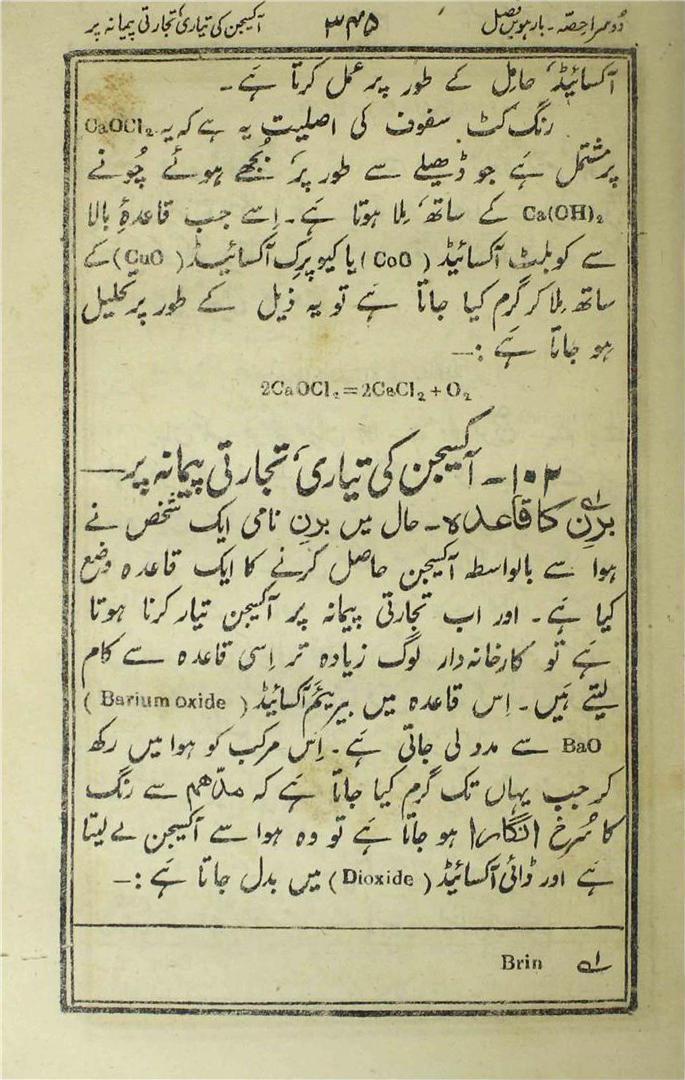 دُوسرا حِصّہ ۔ بارہویں فصل ۳۴۵ آکسیجن کی تیاری تجارتی پیمانہ پر
آکسائیڈ، حامِل کے طور پر عمل کرتا ہے ۔
رنگ کٹ سفوف کی اصلیت یہ ہے کہ یہ CaOCl₂
پر مشتمل ہے جو ڈھیلے سے طور پر، بُجھے ہوئے چُونے
Ca(OH)₂ کے ساتھ، مِلا ہوتا ہے ۔ اِسے جب قاعدۂ بالا
سے کوبلٹ آکسائیڈ ( CoO ) یا کیوپرک آکسائیڈ ( CuO ) کے
ساتھ مِلا کر گرم کیا جاتا ہے تو یہ ذیل کے طور پر تحلیل
ہو جاتا ہے :—
2CaOCl₂ = 2CaCl₂ + O₂
۱۰۲ ۔ آکسیجن کی تیاری، تجارتی پیمانہ پر —
برِن لہ کا قاعدہ ۔ حال میں برن نامی ایک شخص نے
ہوا سے بالواسطہ آکسیجن حاصل کرنے کا ایک قاعدہ وضع
کیا ہے ۔ اور اب تجارتی پیمانہ پر آکسیجن تیار کرنا ہوتا
ہے تو کارخانہ دار لوگ زیادہ تر اِسی قاعدہ سے کام
لیتے ہیں ۔ اِس قاعدہ میں بیریئم آکسائیڈ ( Barium oxide )
BaO سے مدد لی جاتی ہے ۔ اِس مرکب کو ہوا میں رکھ
کر جب یہاں تک گرم کیا جاتا ہے کہ مدّھم سے رنگ
کا سُرخ انگارا ہو جاتا ہے تو وہ ہوا سے آکسیجن لے لیتا
ہے اور ڈائی آکسائیڈ ( Dioxide ) میں بدل جاتا ہے :—
لہ Brin